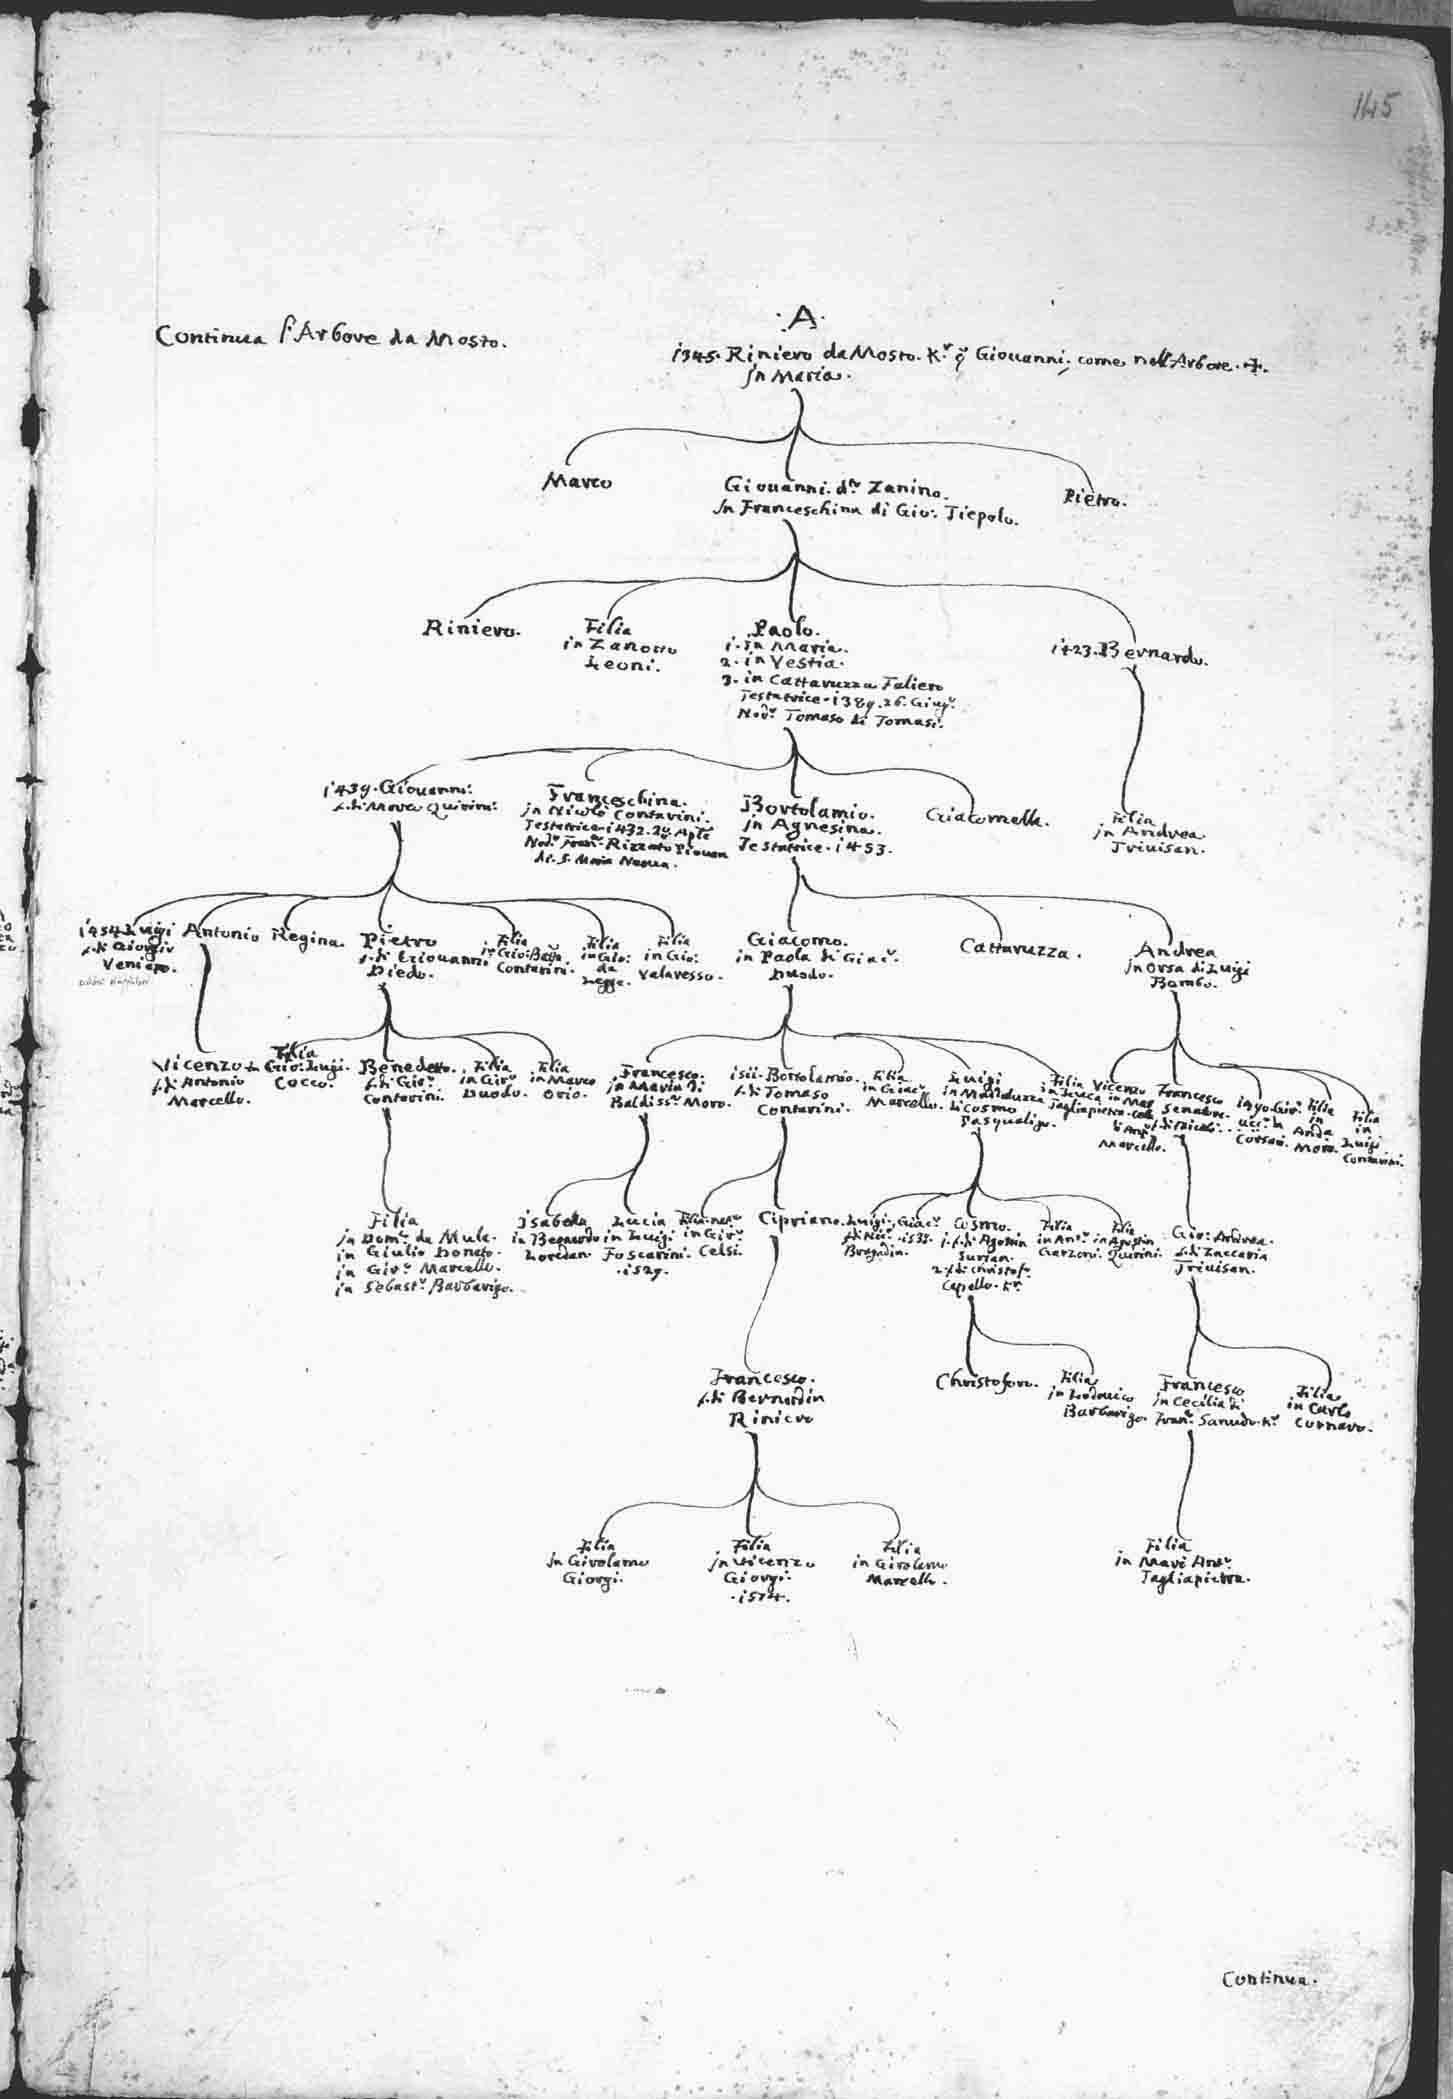 145
Continua l'Arbore da Mosto.
·A·
1345. Riniero da Mosto. Kr. q Giouanni; come nell'Arbore. +.
jn Maria.
Marco
Giouanni. do Zanino.
jn Franceschina di Gio: Tiepolo.
Pietro.
Riniero.
Filia
in Zanotto
Leoni.
Paolo.
1. jn Maria.
2. in Vestia.
3. in Cattaruzza Faliero
Testatrice. 1389. 26. Giugo.
Nodo. Tomaso di Tomasi.
1423. Bernardo.
1439. Giouanni:
f. di Marco Quirini:
Franceschina.
jn Nicolò Contarini.
Testatrice. 1432. Aple
Nodo Frano. Rizzato Piouan
di S. Maria Nuoua.
Bortolamio.
jn Agnesina.
Testatrice. 1453.
Giacomello.
Filia
jn Andrea
Triuisan.
1454 Luigi
f. di Giorgio
Veniero.
Antonio
Regina.
Pietro
f. di Giouanni
Diedo.
Filia
in Gio: Batta
Contarini.
Filia
in Gio:
da
Legge.
Filia
in Gio:
Valaresso.
Giacomo.
in Paola di Giaco.
Duodo.
Cattaruzza.
Andrea
jn Orsa di Luigi
Bembo.
Vicenzo
f. di Antonio
Marcello.
Filia
in Gio: Luigi.
Cocco.
Benedetto.
f. di Giro.
Contarini.
Filia
in Giro
Duodo.
Filia
in Marco
Orio.
Francesco.
jn Maria di
Baldissr. Moro.
1511. Bortolamio.
f. di Tomaso
Contarini.
Filia
in Giaco.
Marcello.
Luigi
in Madaluzza
di Cosmo
Pasqualigo.
Filia
in Luca
Tagliapietra.
Vicenzo
in Mar
di Anto
Marcello.
Francesco
Senatore.
f. di Nicolò.
1490. Giro.
ucco. da
Corsari.
Filia
in
Anda
Moro.
Filia
in
Luigi
Contarini.
Filia
jn Domo. da Mula.
in Giulio Donato.
in Giro. Marcello.
in Sebasto. Barbarigo.
jsabella
in Bernardo
Loredan
Lucia
in Luigi
Foscarini.
.1529.
Filia
in Giro.
Celsi.
Cipriano.
Luigi.
f. di Nico.
Bragadin.
Giaco.
.1535.
Cosmo.
1. f. di Agostin
Surian.
2. f. di Christofo.
Capello. Kr.
Filia
in Anto.
Garzoni.
Filia
in Agustin
Quirini.
Gio: Andrea.
f. di Zaccaria
Triuisan.
Francesco.
f. di Bernardin
Riniero
Christoforo.
Filia
in Lodouico
Barbarigo.
Francesco
jn Cecilia di
Frano. Sanudo. Kr.
Filia
in Carlo
Cornaro.
Filia
jn Girolamo
Giorgi.
Filia
jn Vicenzo
Giorgi.
.1574.
Filia
in Girolamo
Marcello.
Filia
in Marc' Anto.
Tagliapietra.
Continua.